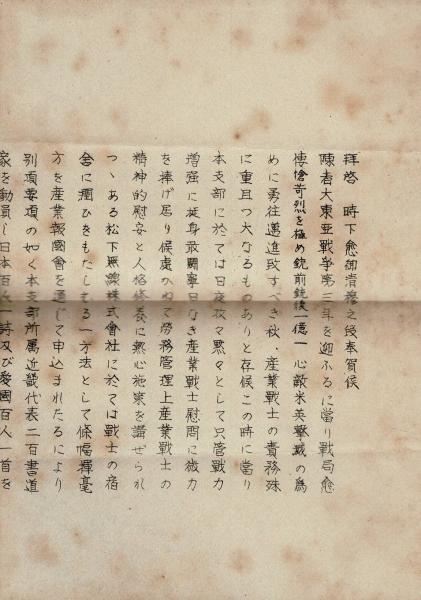 拝啓　時下愈御清穆之段奉賀候
陳者大東亜戦争第三年を迎ふるに當り戰局愈
愴苛烈を極め銃前銃後一億一心敵米英撃滅の爲
めに勇往邁進致すべき秋、産業戰士の責務殊
に重且つ大なるものありと存候この時に當り
本支部に於ては日夜孜々黙々として只管戰力
増強に挺身敢闘寧日なき産業戰士慰問に微力
を捧げ居り候處かねて労務管理上産業戰士の
精神的慰安と人格修養に熱心施策を講ぜられ
つゝある松下無線株式會社に於ては戰士の宿
舎に潤ひをもたしむる一方法として條幅揮毫
方を産業報國會を通じて申込まれたるにより
別項要項の如く本支部所属近畿代表二百書道
家を動員し日本百人一詩及び愛國百人一首を